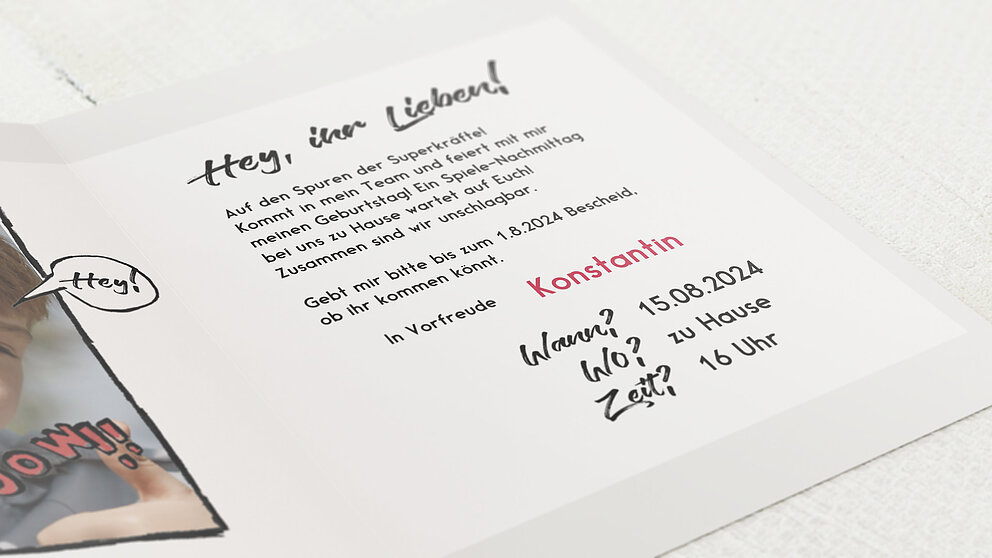 Hey, ihr Lieben!
Auf den Spuren der Superkräfte!
Kommt in mein Team und feiert mit mir
meinen Geburtstag! Ein Spiele-Nachmittag
bei uns zu Hause wartet auf Euch!
Zusammen sind wir unschlagbar.
Gebt mir bitte bis zum 1.8.2024 Bescheid,
ob ihr kommen könnt.
In Vorfreude
Konstantin
Wann? 15.08.2024
Wo? zu Hause
Zeit? 16 Uhr
Hey!
OW!!